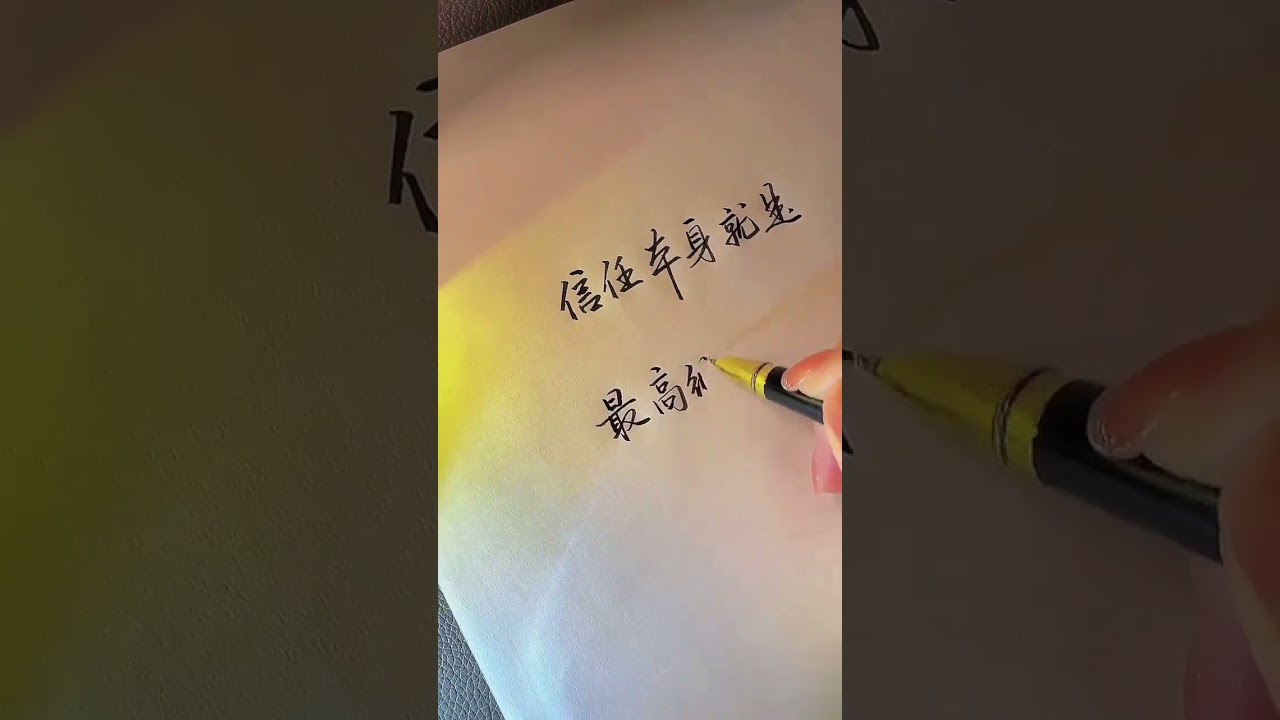 信任本身就是
最高